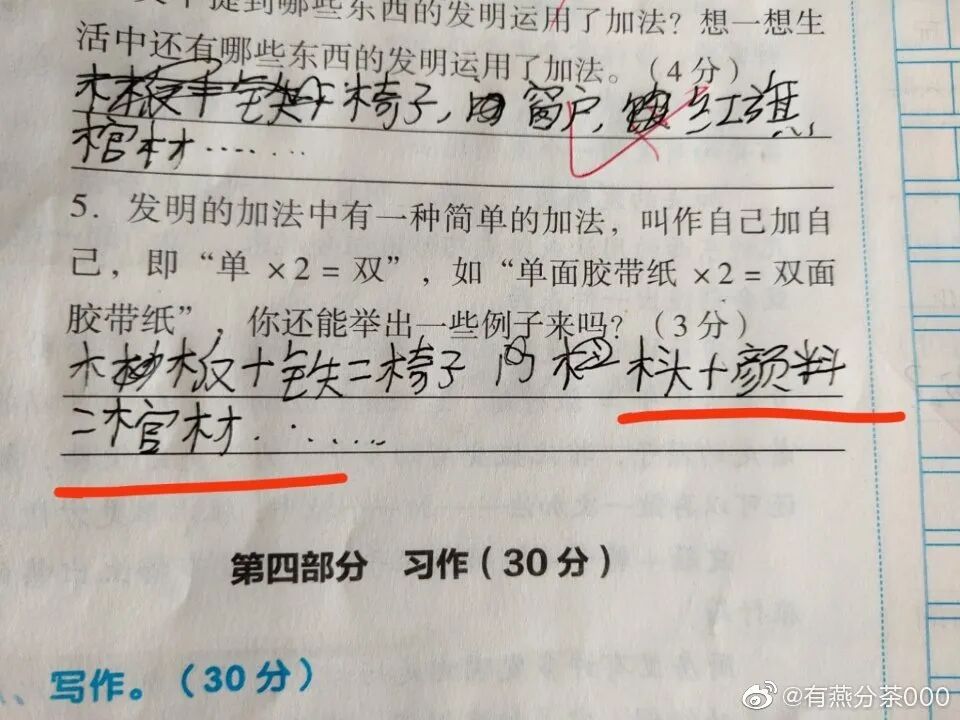 提到哪些东西的发明运用了加法？想一想生
活中还有哪些东西的发明运用了加法。（4分）
椅子，窗户，红旗
棺材……
5．发明的加法中有一种简单的加法，叫作自己加自
己，即“单×2=双”，如“单面胶带纸×2=双面
胶带纸”，你还能举出一些例子来吗？（3分）
木板+铁=椅子 木头+颜料
=棺材……
第四部分 习作（30分）
写作。（30分）
@有燕分茶000